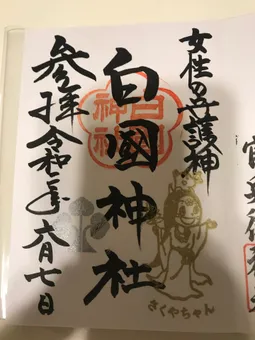 女性の守護神
白國神社
参拝令和 年六月七日
白國
神社
さくやちゃん
官兵衛